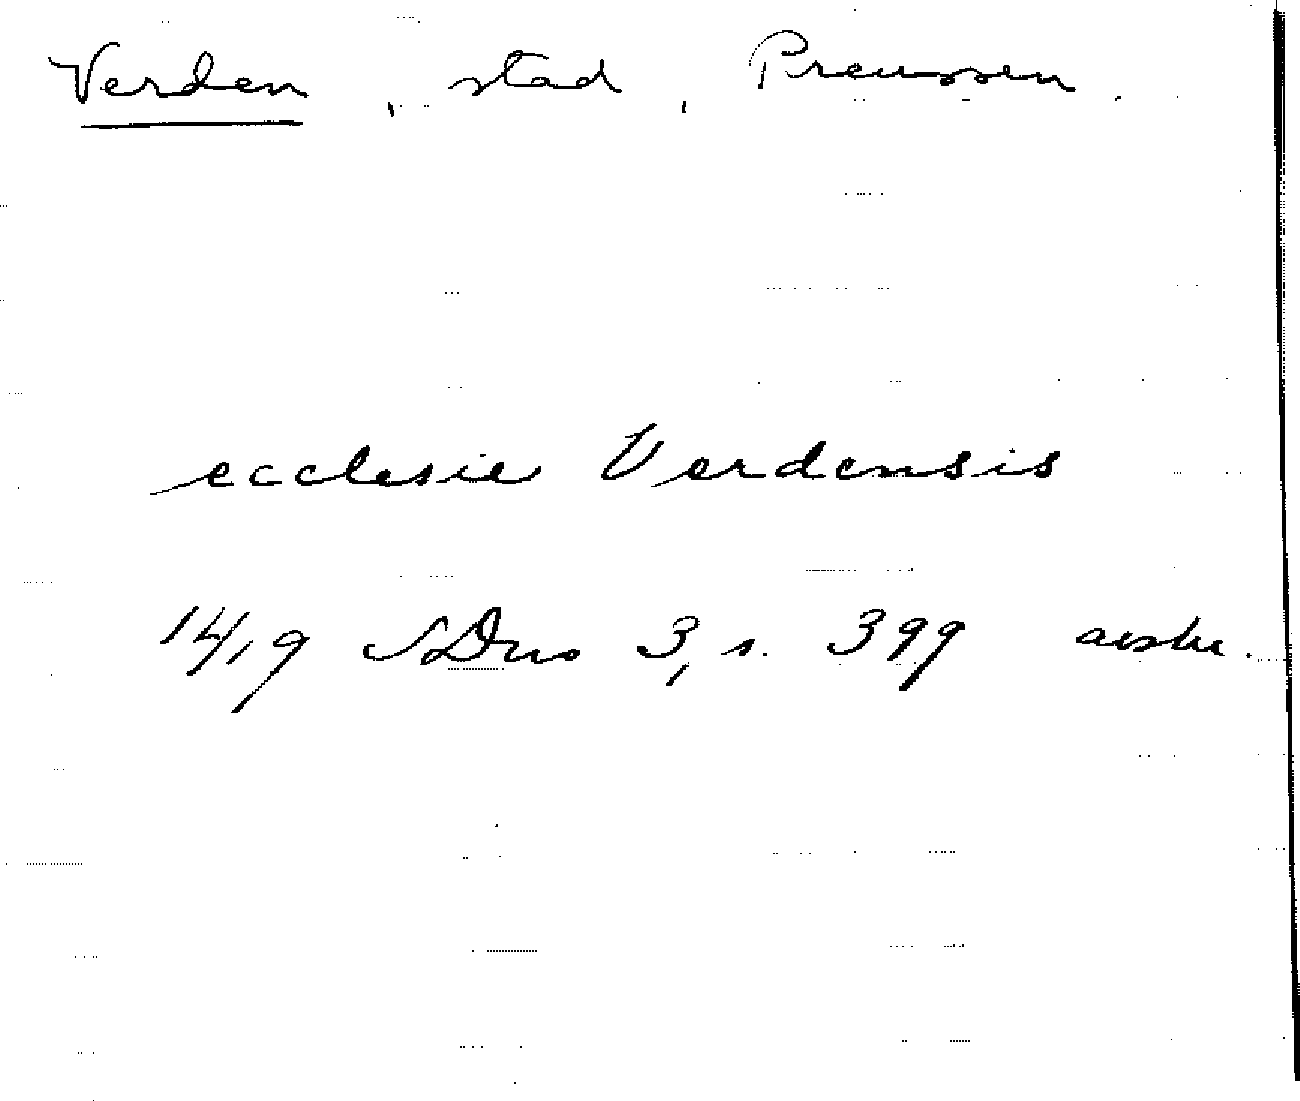 Verden, stad, Preussen.
ecclesie Verdensis
1419 SDns 3, s. 399 avskr.